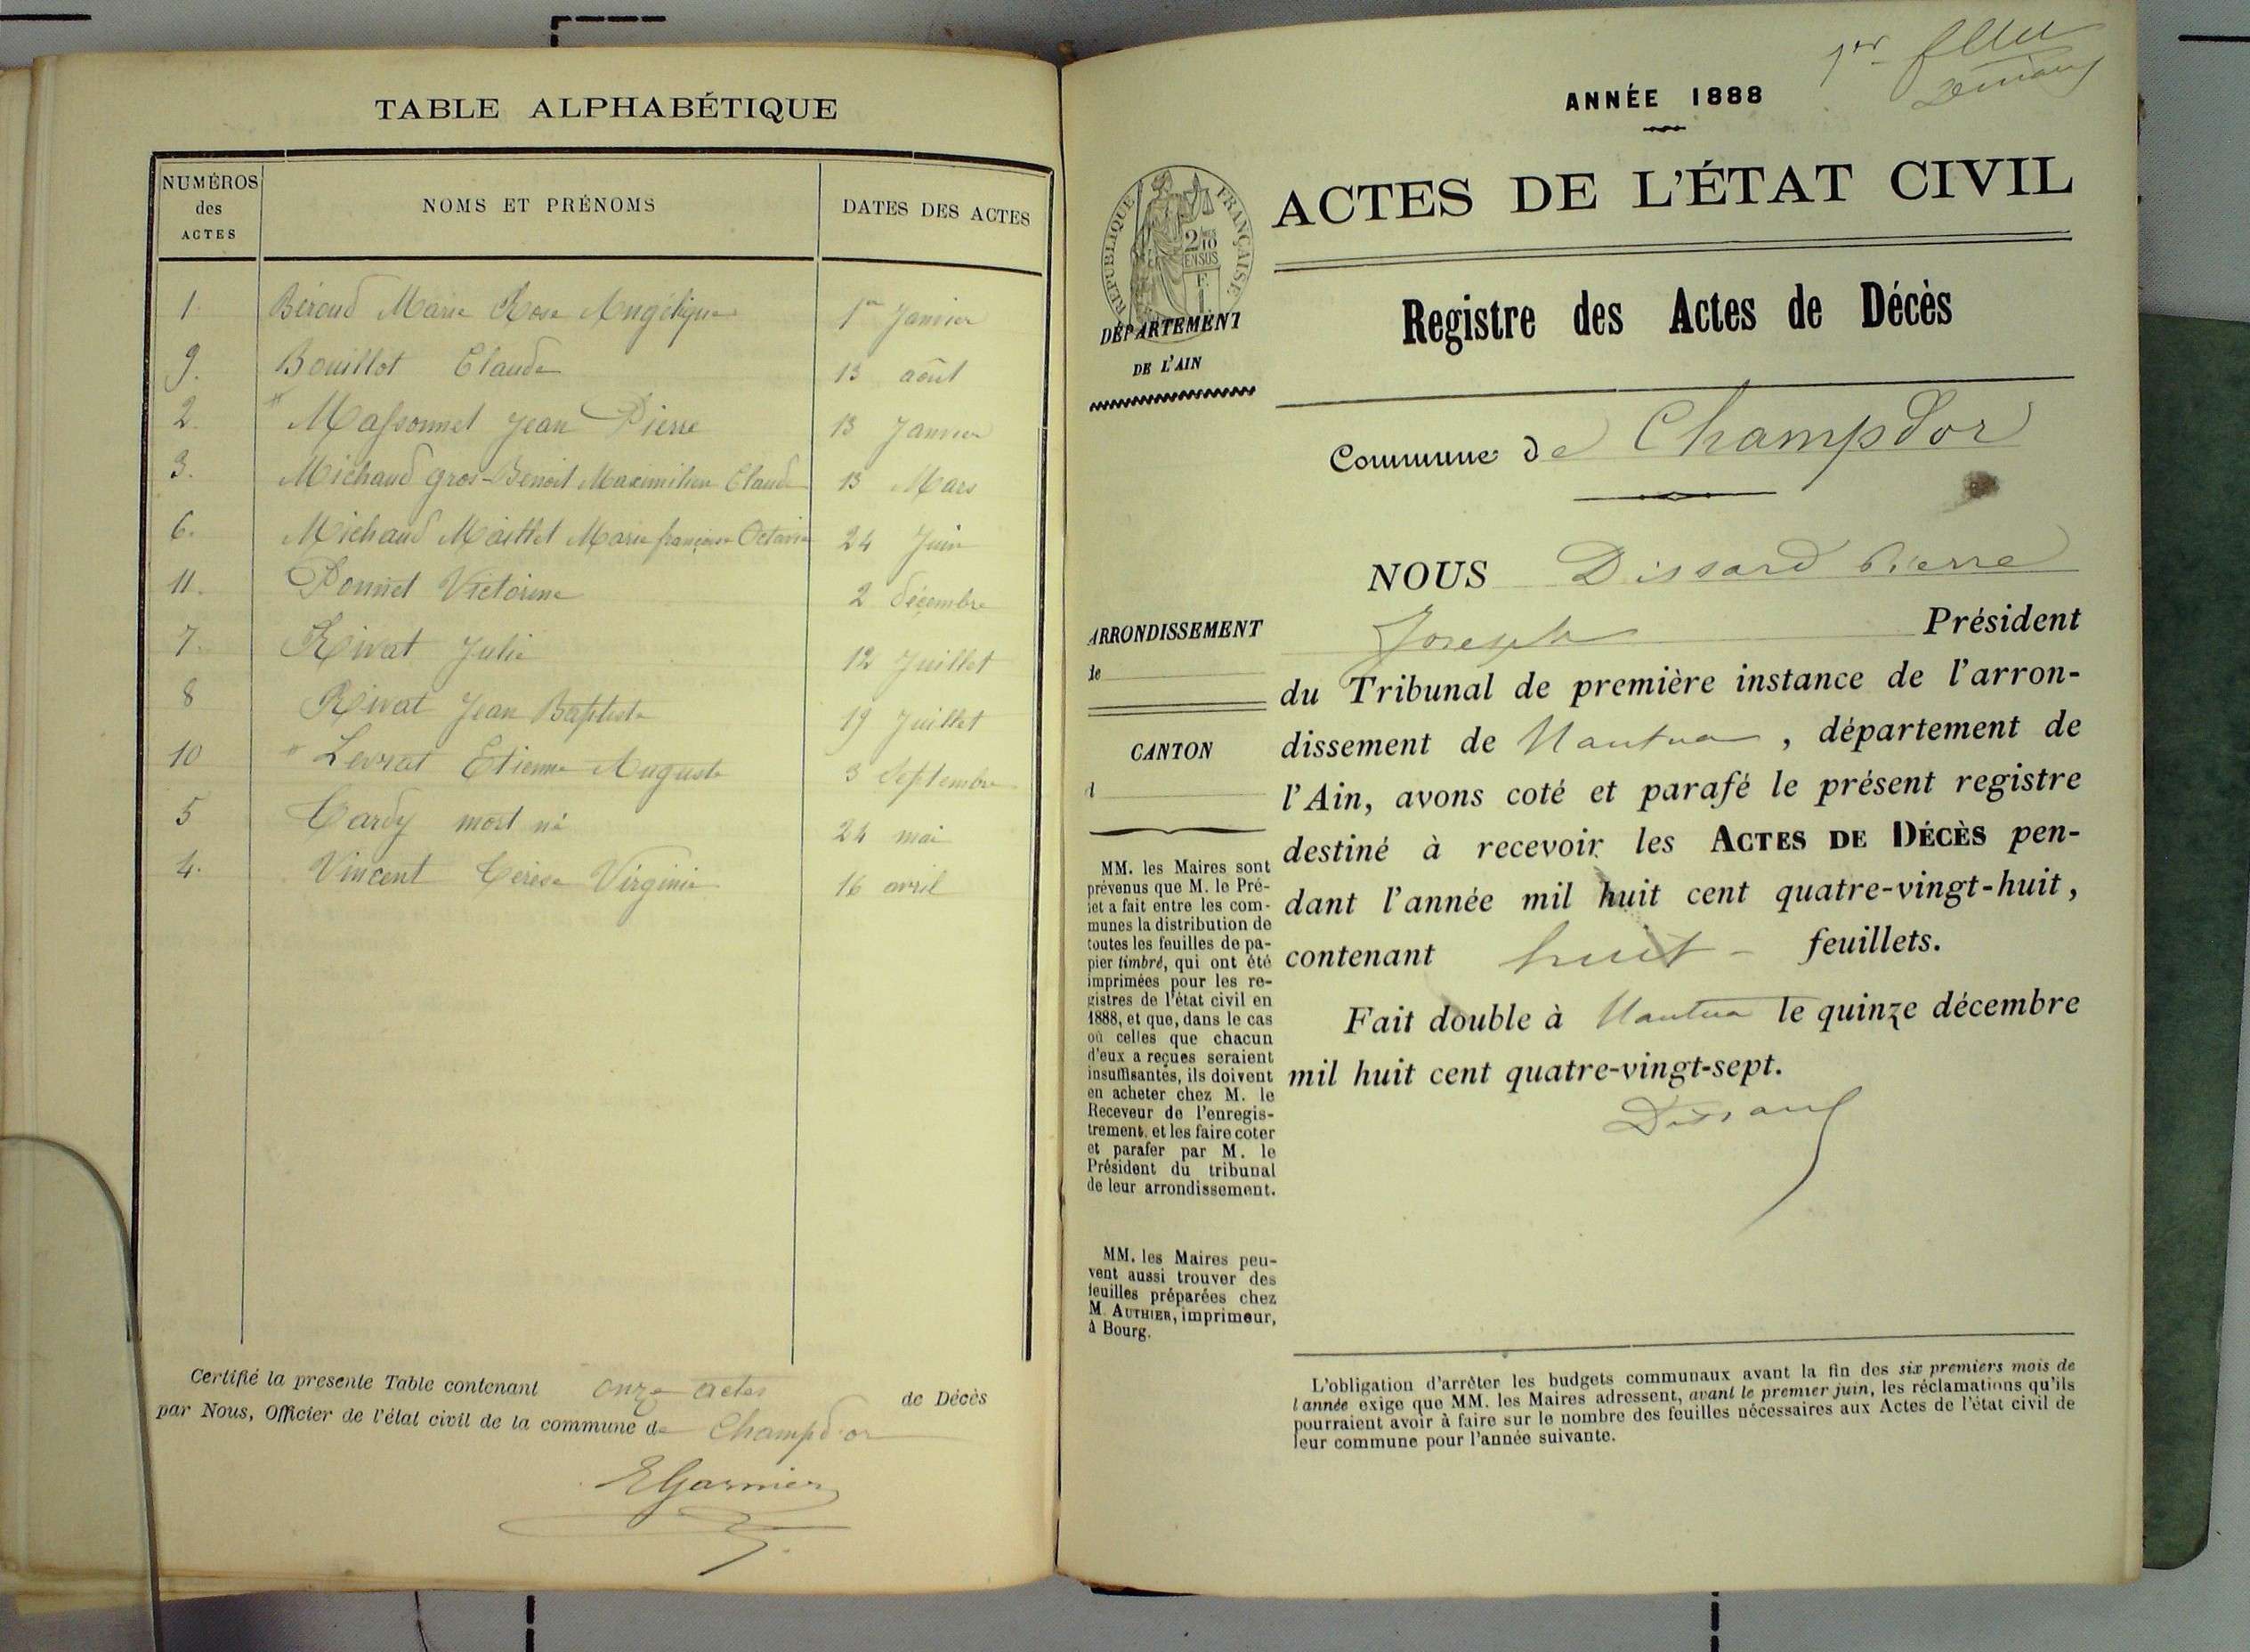 TABLE ALPHABÉTIQUE
NUMÉROS des ACTES NOMS ET PRÉNOMS DATES DES ACTES
1. Béroud Marie Rose Angélique 1er Janvier
9. Bouillot Claude 13 août
2. " Massonnet Jean Pierre 13 Janvier
3. Michaud gros-Benoit Maximilien Claude 13 Mars
6. Michaud Maillet Marie françoise Octavie 24 Juin
11. Ponnet Victorine 2 décembre
7. Rivat Julie 12 Juillet
8 Rivat Jean Baptiste 19 Juillet
10 " Levrat Etienne Auguste 3 Septembre
5 Tardy mort né 24 mai
4. Vincent Térèse Virginie 16 avril
Certifié la presente Table contenant onze actes de Décès
par Nous, Officier de l'état civil de la commune de Champd'or
EGarnier
1er
ANNÉE 1888
ACTES DE L'ÉTAT CIVIL
RÉPUBLIQUE FRANÇAISE
DÉPARTEMENT
DE L'AIN
Registre des Actes de Décès
Commune de Champdor
NOUS Dissard Pierre
Joseph Président
du Tribunal de première instance de l'arron-
dissement de Nantua, département de
l'Ain, avons coté et parafé le présent registre
destiné à recevoir les ACTES DE DÉCÈS pen-
dant l'année mil huit cent quatre-vingt-huit,
contenant huit - feuillets.
Fait double à Nantua le quinze décembre
mil huit cent quatre-vingt-sept.
Dissard
ARRONDISSEMENT
de
CANTON
d
MM. les Maires sont
prévenus que M. le Pré-
fet a fait entre les com-
munes la distribution de
toutes les feuilles de pa-
pier timbré, qui ont été
imprimées pour les re-
gistres de l'état civil en
1888, et que, dans le cas
où celles que chacun
d'eux a reçues seraient
insuffisantes, ils doivent
en acheter chez M. le
Receveur de l'enregis-
trement, et les faire coter
et parafer par M. le
Président du tribunal
de leur arrondissement.
MM. les Maires peu-
vent aussi trouver des
feuilles préparées chez
M. AUTHIER, imprimeur,
à Bourg.
L'obligation d'arrêter les budgets communaux avant la fin des six premiers mois de
l'année exige que MM. les Maires adressent, avant le premier juin, les réclamations qu'ils
pourraient avoir à faire sur le nombre des feuilles nécessaires aux Actes de l'état civil de
leur commune pour l'année suivante.